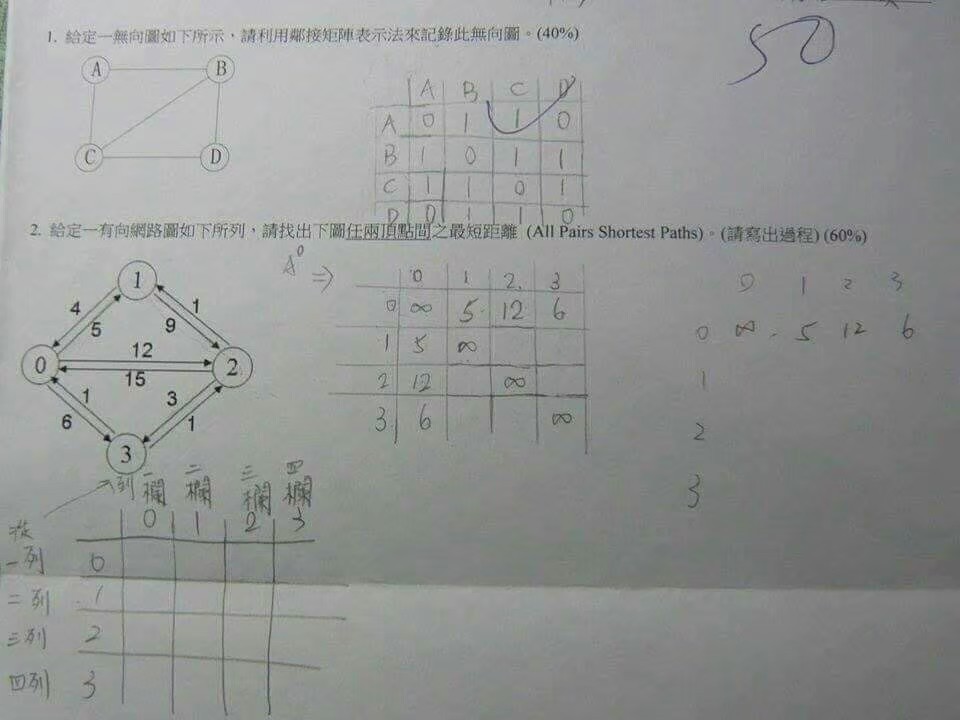 50
1. 給定一無向圖如下所示，請利用鄰接矩陣表示法來記錄此無向圖。(40%)
A B
C D
A B C D
A 0 1 1 0
B 1 0 1 1
C 1 1 0 1
D 0 1 1 0
2. 給定一有向網路圖如下所列，請找出下圖任兩頂點間之最短距離 (All Pairs Shortest Paths)。(請寫出過程) (60%)
1
4 1
5 9
12
0 2
15
1 3
6 1
3
A⁰ ⇒
0 1 2 3
0 ∞ 5 12 6
1 5 ∞
2 12 ∞
3 6 ∞
0 1 2 3
0 ∞ 5 12 6
1
2
3
到 一欄 二欄 三欄 四欄
0 1 2 3
從
一列 0
二列 1
三列 2
四列 3